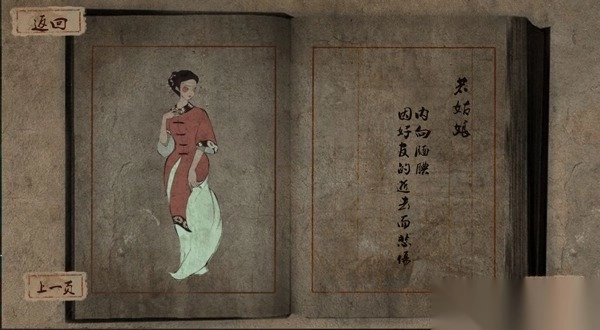 返回
若姑娘
内向腼腆
因好友的逝去而悲伤
上一页